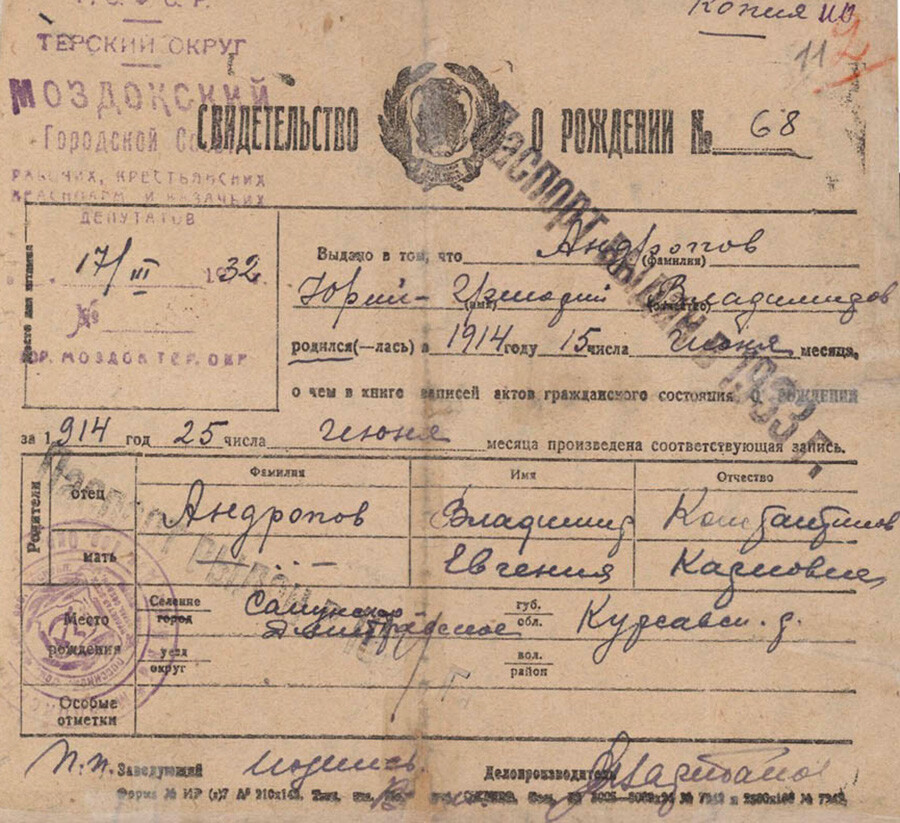 Р. С. Ф. С. Р.
ТЕРСКИЙ ОКРУГ
МОЗДОКСКИЙ
Городской Совет
РАБОЧИХ, КРЕСТЬЯНСКИХ
КРАСНОАРМ. И КАЗАЧЬИХ
ДЕПУТАТОВ
17/III 1932 г.
№
ГОР. МОЗДОК ТЕР. ОКР.
Копия
11 2
СВИДЕТЕЛЬСТВО О РОЖДЕНИИ № 68
Паспорт выдан в 1933 г.
Выдано в том, что Андропов
(фамилия)
Юрий- Владимиров
(имя) (отчество)
родился(—лась) в 1914 году 15 числа июня месяца,
о чем в книге записей актов гражданского состояния о рождении
за 1914 год 25 числа июня месяца произведена соответствующая запись.
Родители
Фамилия Имя Отчество
отец Андропов Владимир Константинов
мать — " — Евгения Карловна
Место рождения
Селение город губ. обл. Курсавск. р.
уезд округ вол. район
Паспорт выдан
Особые отметки
П.п. Заведующий подпись Делопроизводитель
Форма № ИР